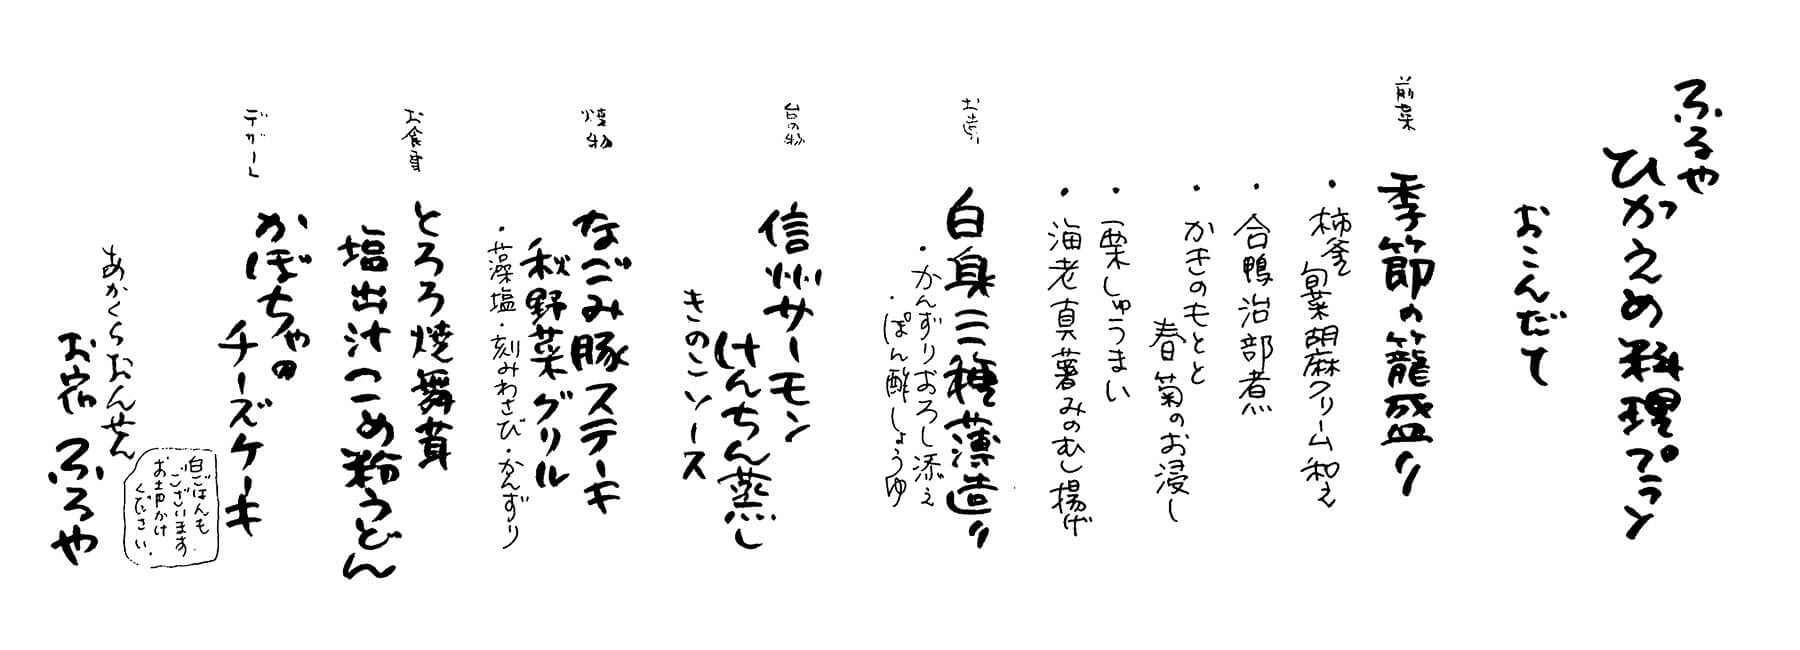 ふるや
ひかえめ料理プラン
おこんだて
前菜
季節の籠盛り
・柿釜 旬菜胡麻クリーム和え
・合鴨治部煮
・かきのもとと
春菊のお浸し
・栗しゅうまい
・海老真薯みのむし揚げ
お造り
白身三種薄造り
・かんずりおろし添え
・ぽん酢しょうゆ
台の物
信州サーモン
けんちん蒸し
きのこソース
焼物
なごみ豚ステーキ
秋野菜グリル
・藻塩・刻みわさび・かんずり
お食事
とろろ焼舞茸
塩出汁こめ粉うどん
デザート
かぼちゃの
チーズケーキ
白ごはんも
ございます
お声かけ
ください.
あかくらおんせん
お宿 ふるや